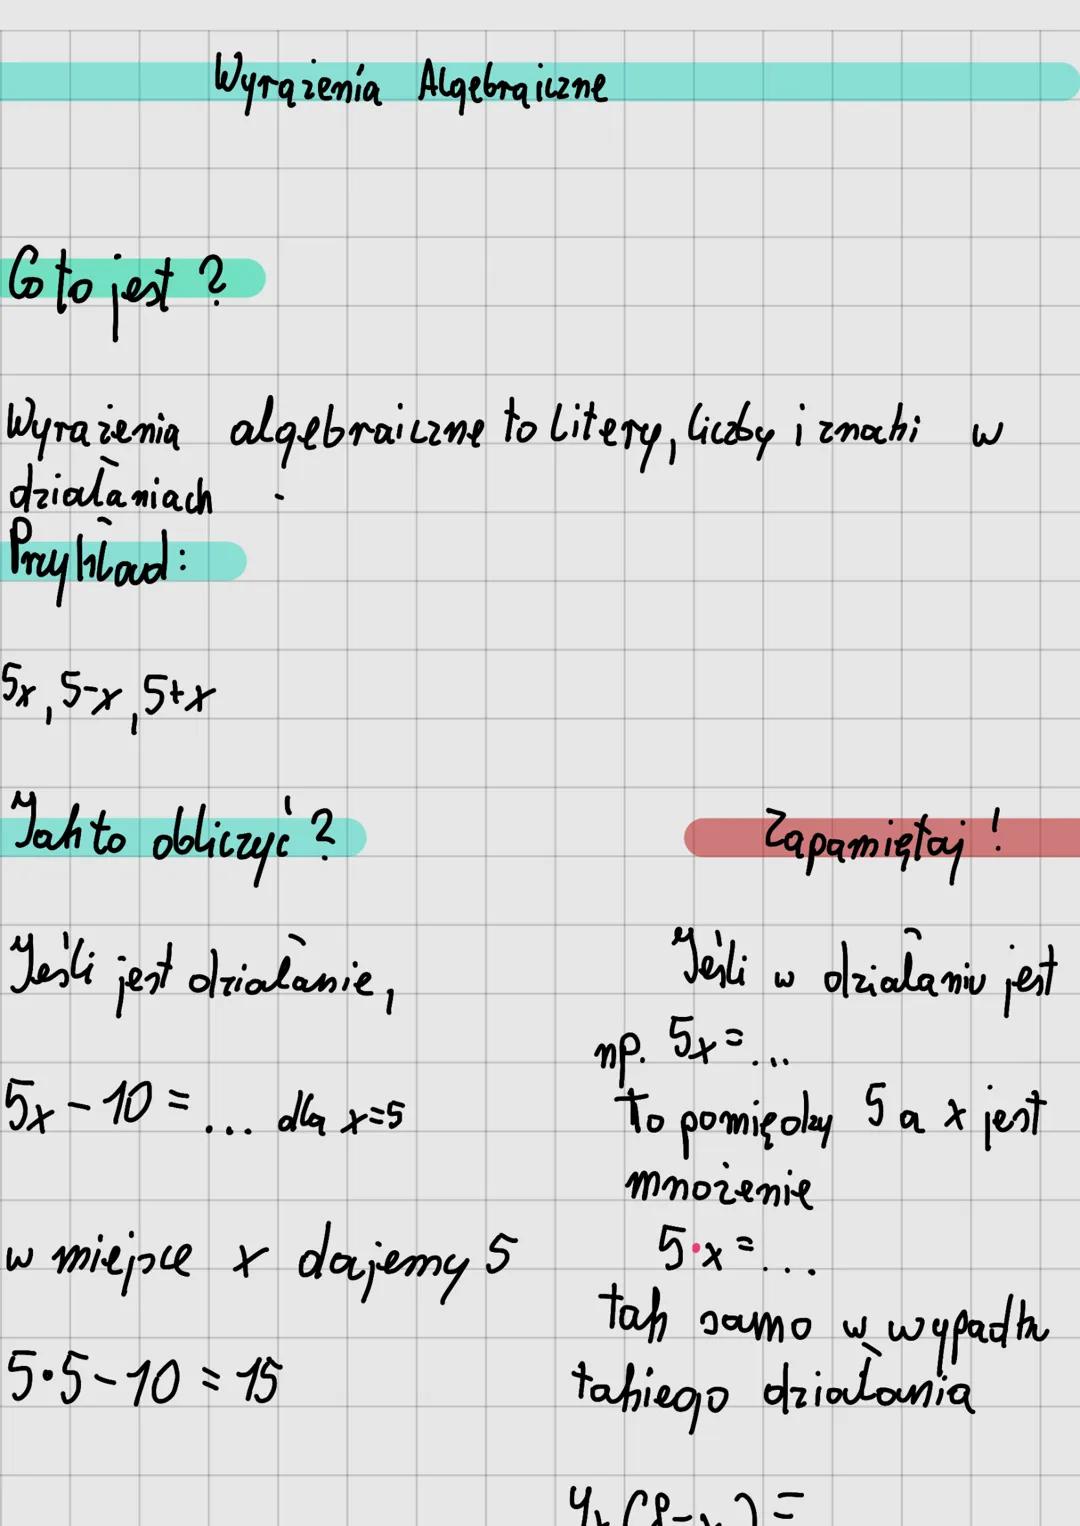 Wyrażenia Algebraiczne
Co to jest ?
Wyrażenia algebraiczne to litery, liczby i znaki w
działaniach .
Przykład:
5x, 5-x, 5+x
Jak to obliczyć ?
Jeśli jest działanie,
5x - 10 = ... dla x=5
w miejsce x dajemy 5
5·5-10 = 15
Zapamiętaj !
Jeśli w działaniu jest
np. 5x = ...
To pomiędzy 5 a x jest
mnożenie
5·x = ...
tak samo w wypadku
takiego działania
4x (8-x) =